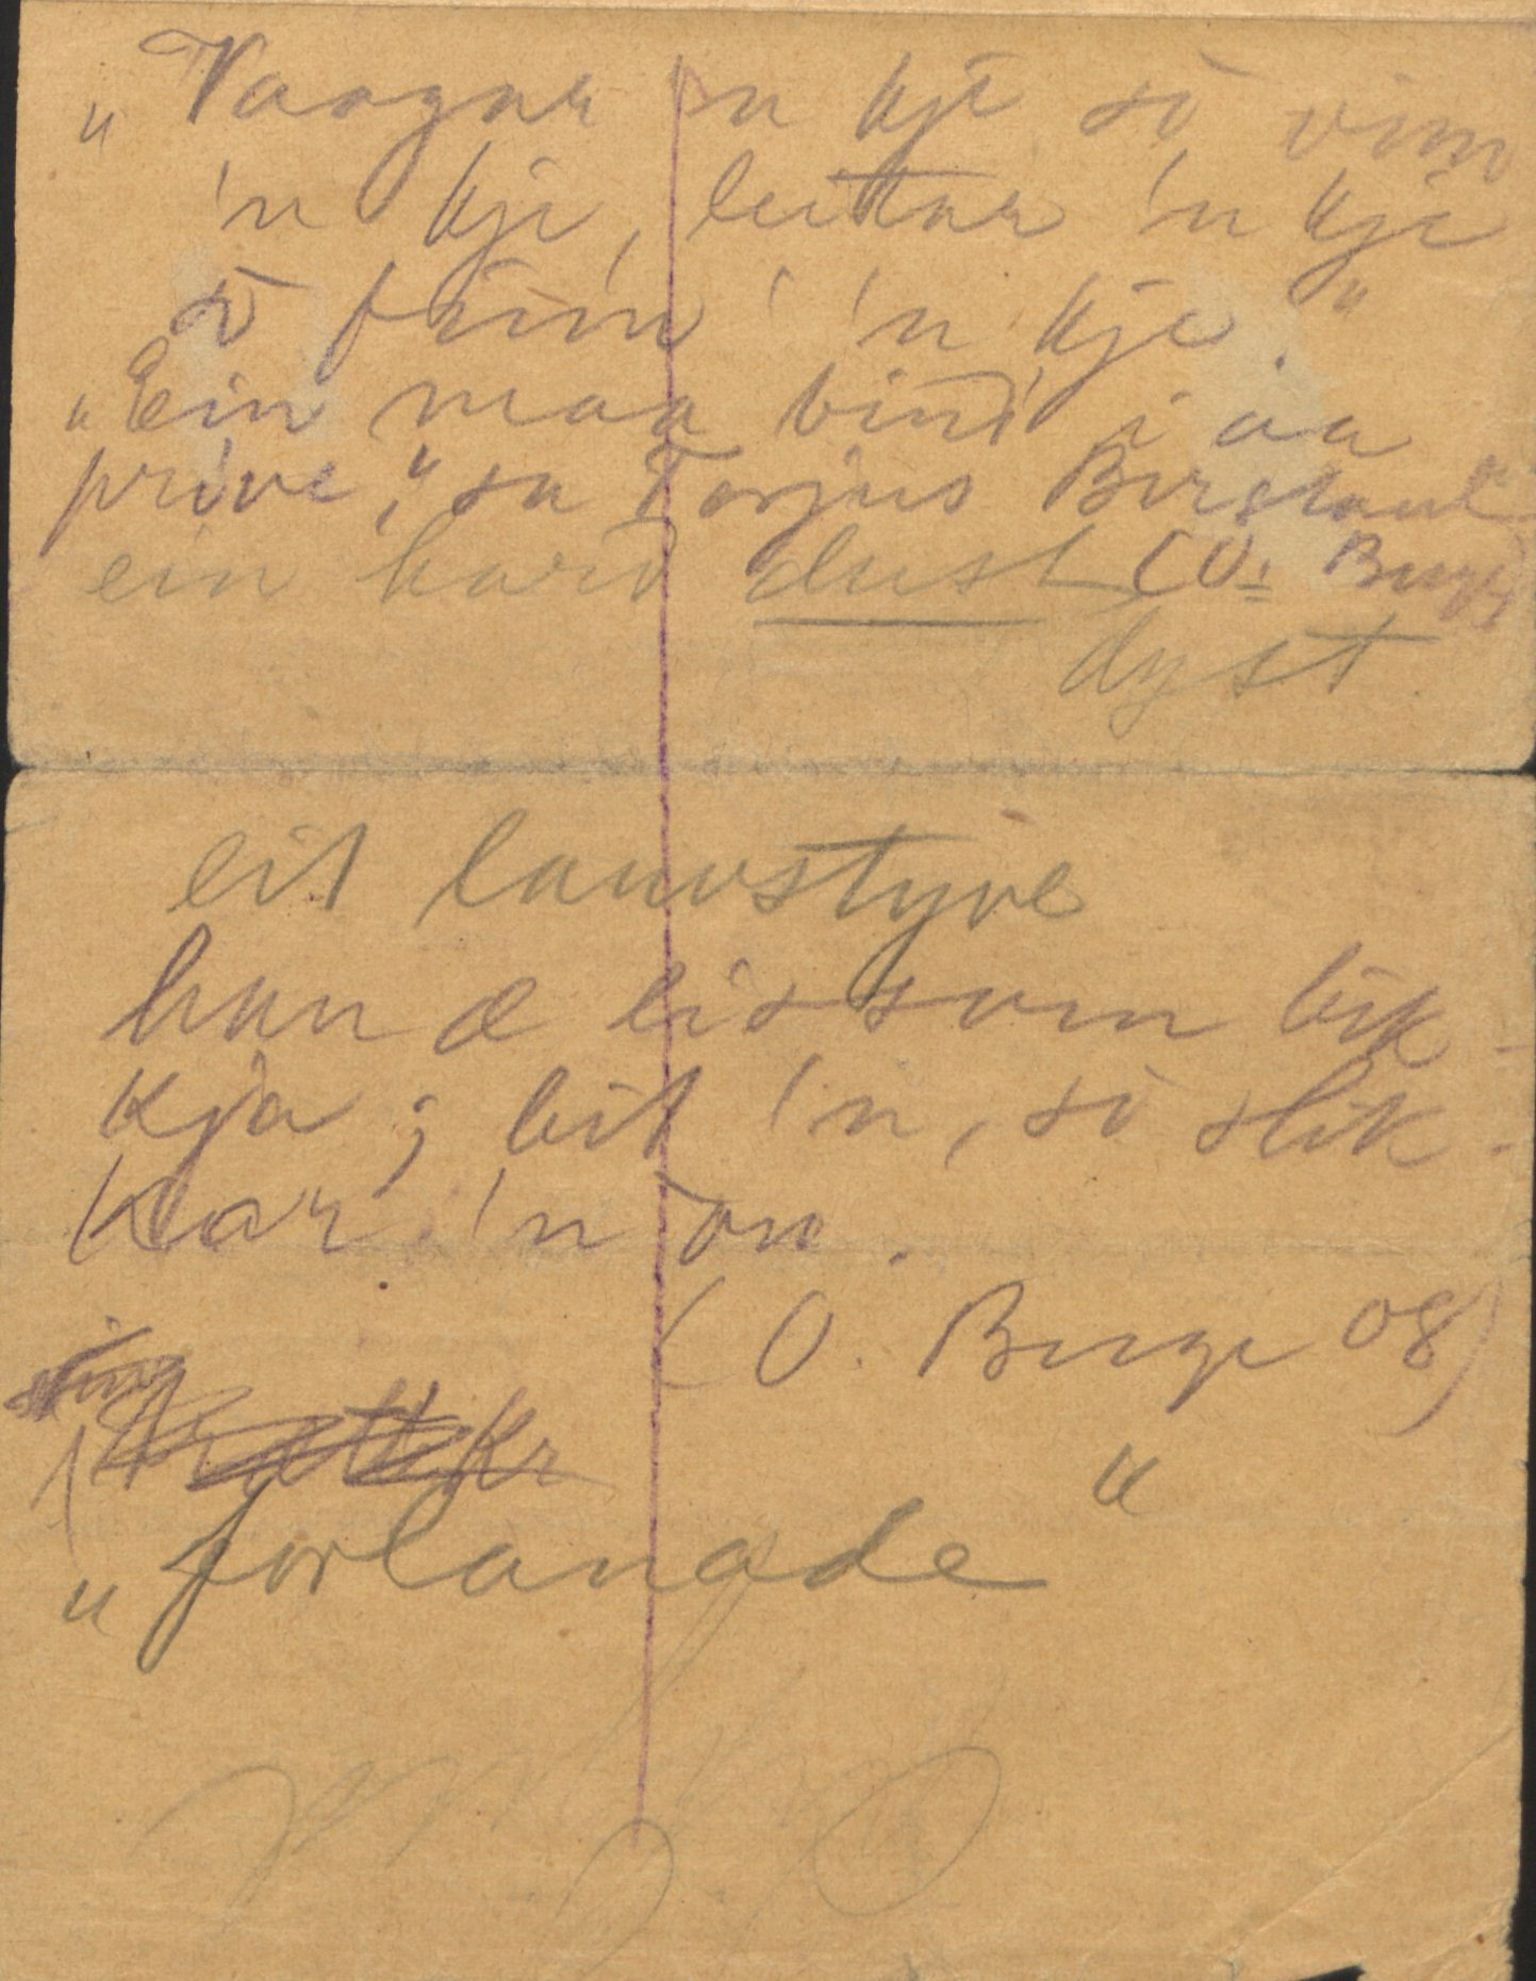 „Vaagar 'n kje so vinn
'n kje, leitar 'n kje
so finn 'n kje."
„Ein maa vinn i aa
prive," sa Torjus Borstaul
ein hard dust (O. Berge)
dyst
eit lauvstyve
han æ lissom bik-
kja; bit 'n, so slik-
kar 'n on.
(O. Berge 08)
„forlanade"